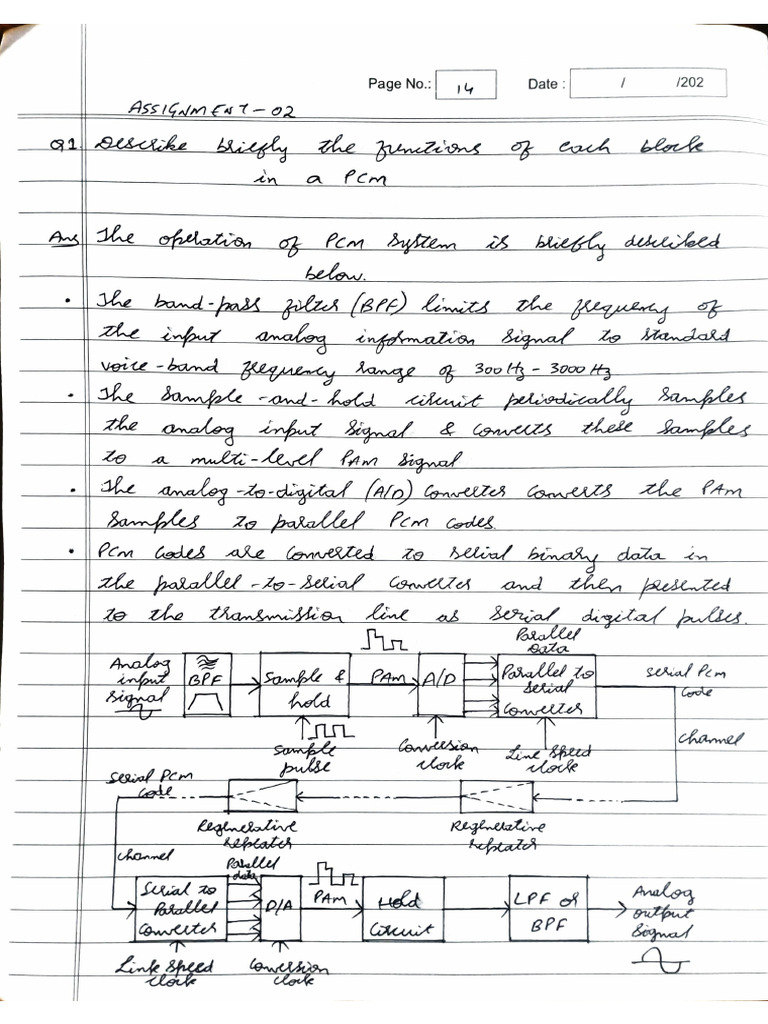 Page No.: 14 Date : / /202
ASSIGNMENT-02
Q1. Describe briefly the functions of each block
in a PCM
Ans The operation of PCM system is briefly described
below.
• The band-pass filter (BPF) limits the frequency of
the input analog information signal to standard
voice-band frequency range of 300 Hz - 3000 Hz
• The sample-and-hold circuit periodically samples
the analog input signal & converts these samples
to a multi-level PAM signal
• The analog-to-digital (A/D) converter converts the PAM
samples to parallel PCM codes.
• PCM codes are converted to serial binary data in
the parallel-to-serial converter and then presented
to the transmission line as serial digital pulses.
Parallel
data
Analog
input
signal
BPF
Sample &
hold
PAM
A/D
Parallel to
serial
converter
serial PCM
code
channel
sample
pulse
Conversion
clock
Line speed
clock
serial PCM
code
Regenerative
repeater
Regenerative
repeater
channel
Parallel
data
Serial to
Parallel
converter
D/A
PAM
Hold
Circuit
LPF or
BPF
Analog
output
signal
Link speed
clock
Conversion
clock